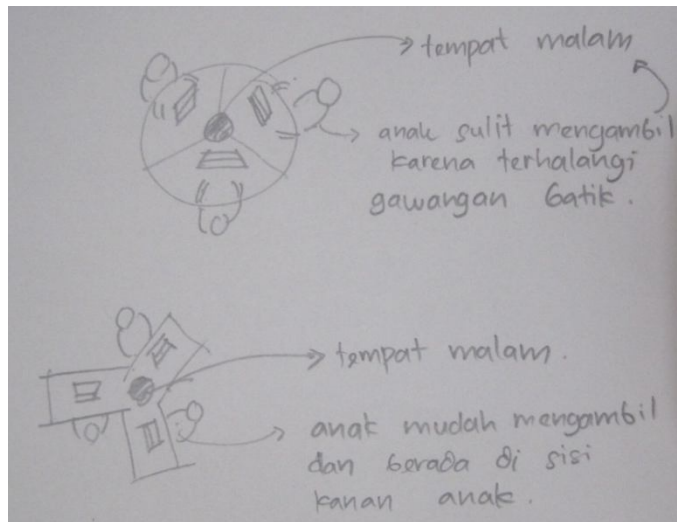 tempat malam
anak sulit mengambil
karena terhalangi
gawangan batik.
tempat malam.
anak mudah mengambil
dan berada di sisi
kanan anak.